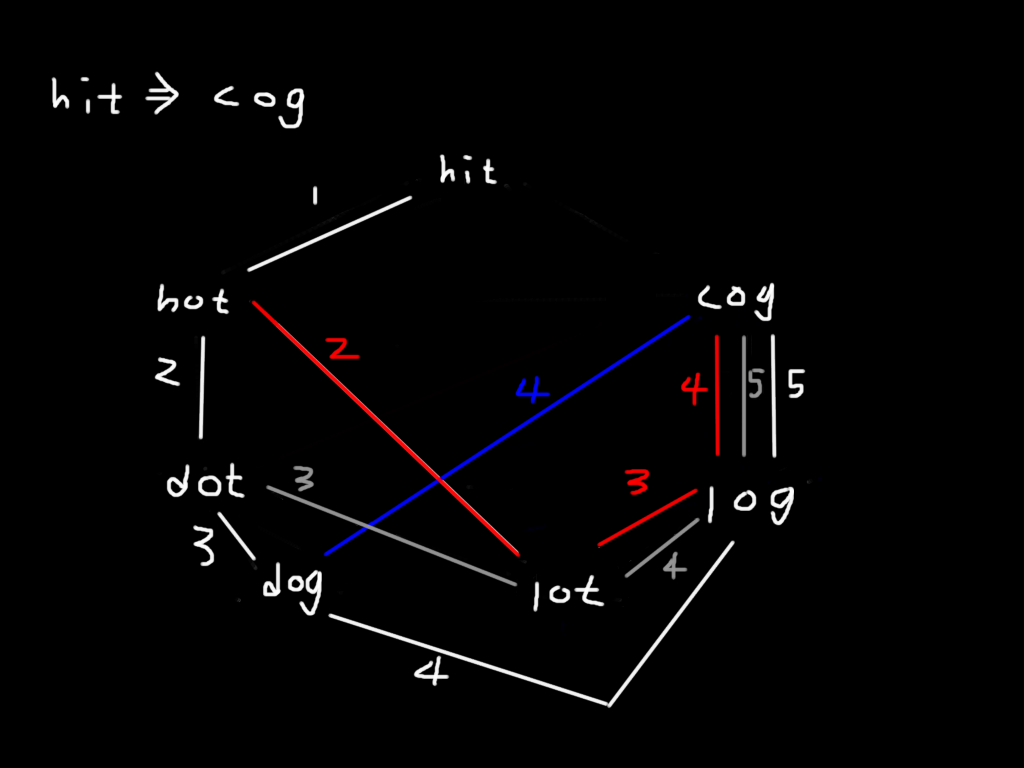 hit ⇒ cog
hit
1
hot
cog
2
2
4
4
5
5
dot
3
3
log
3
dog
lot
4
4